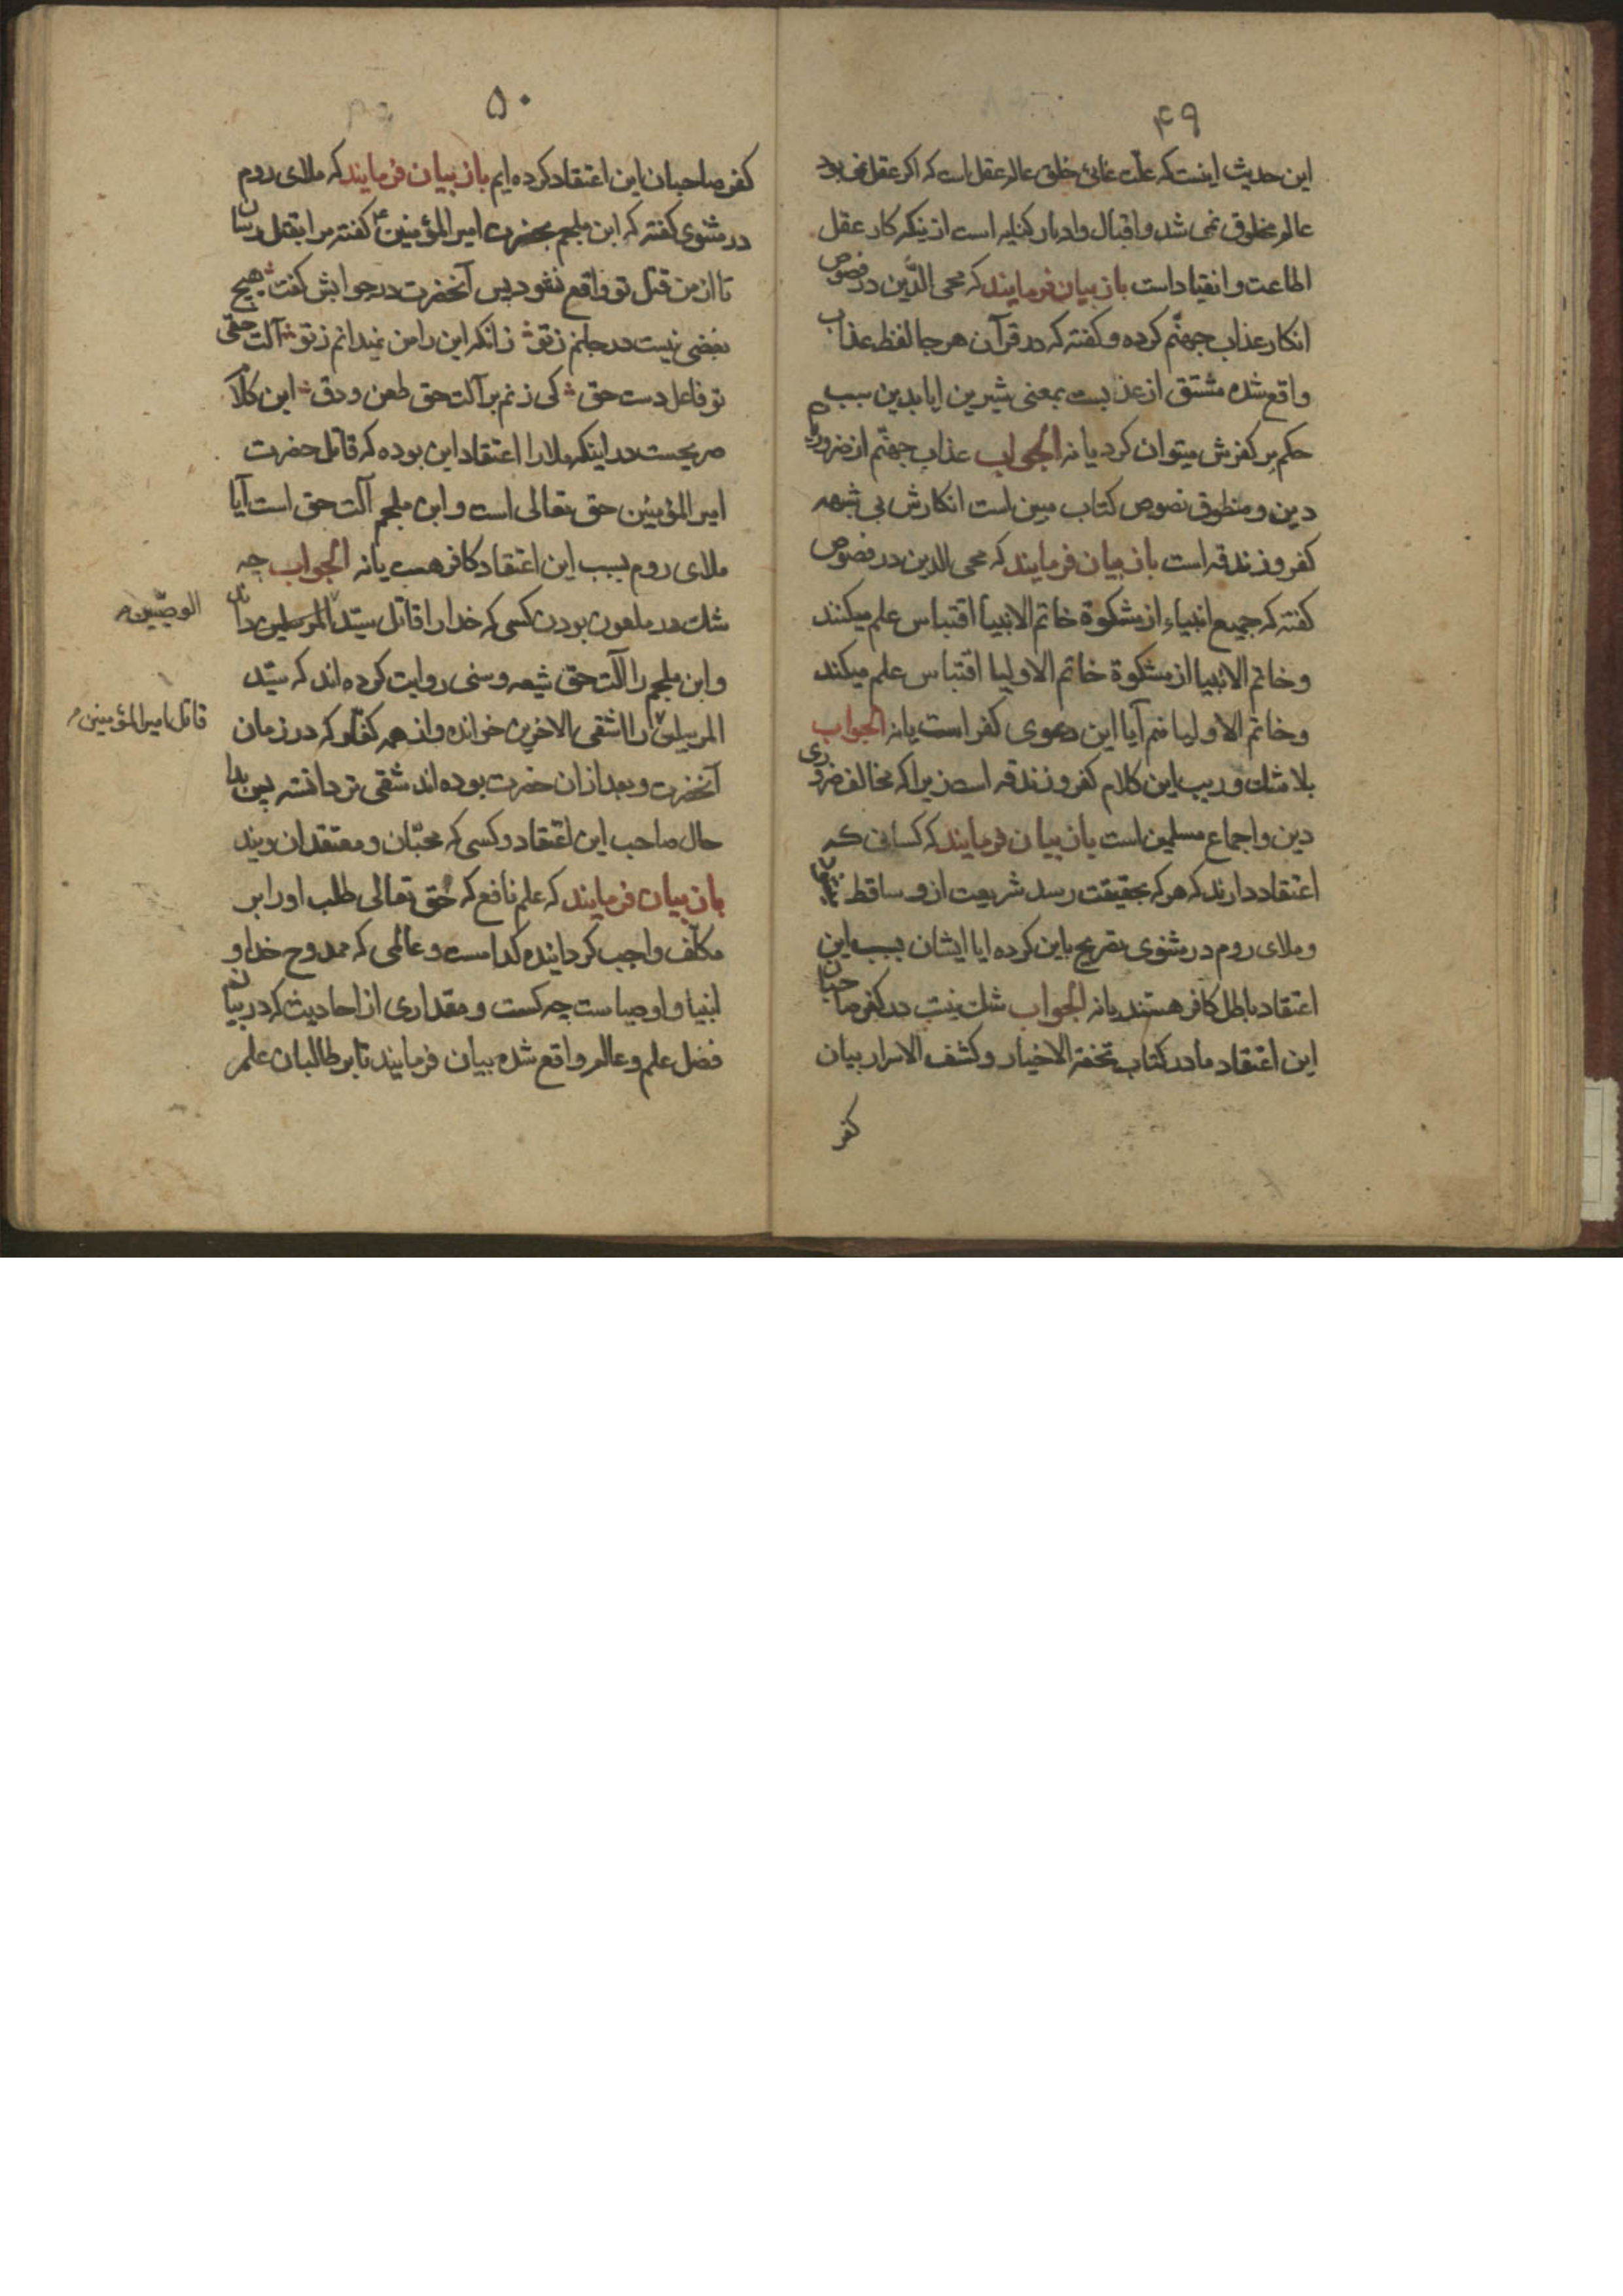 ۴۹
این حدیث اینست که علت غائی خلق عالم عقل است که اکر عقل نمی بود
عالم مخلوق نمی شد و اقبال و ادبار کنایه است از ینکه کار عقل
اطاعت و انقیاد است باز بیان فرمایند که محی الدّین در فصوص
انکار عذاب جهنّم کرده و کفته که در قرآن هر جا لفظ عذاب
واقع شده مشتق از عذبست بمعنی شیرین ایا بدین سبب
حکم بر کفرش میتوان کرد یا نه الجواب عذاب جهنّم از ضروریات
دین و منطوق نصوص کتاب مبین است انکارش بی شبهه
کفر و زندقه است باز بیان فرمایند که محی الدین در فصوص
کفته که جمیع انبیاء از مشکوة خاتم الانبیا اقتباس علم میکنند
و خاتم الانبیا از مشکوة خاتم الاولیا اقتباس علم میکند
و خاتم الاولیا منم آیا این دعوی کفر است یا نه الجواب
بلا شك و ریب این کلام کفر و زندقه است زیرا که مخالف ضروری
دین و اجماع مسلمین است باز بیان فرمایند که کسانی که
اعتقاد دارند که هر که بحقیقت رسد شریعت از و ساقط
و ملای روم در مثنوی تصریح باین کرده ایا ایشان بسبب این
اعتقاد باطل کافر هستند یا نه الجواب شك نیست در کفر صاحبان
این اعتقاد ما در کتاب تحفة الاخیار و کشف الاسرار بیان
کفر
۵۰
کفر صاحبان این اعتقاد کرده ایم باز بیان فرمایند که ملای روم
در مثنوی کفته که ابن ملجم بحضرت امیر المؤمنین ع کفته مرا بقتل رسان
تا از من قتل تو واقع نشود پس آنحضرت در جوابش کفت هیچ
بغضی نیست در جانم ز تو زانکه این را من نمیدانم ز تو آلت حقی
تو فاعل دست حق کی زنم بر آلت حق طعن و دق این کلام
صریحست در اینکه ملا را اعتقاد این بوده که قاتل حضرت
امیر المؤمنین حق تعالی است و ابن ملجم آلت حق است آیا
ملای روم بسبب این اعتقاد کافر هست یا نه الجواب چه
شك در ملعون بودن کسی که خدا را قاتل سیّد المرسلین داند
الوصیّین
و ابن ملجم را آلت حق شیعه و سنی روایت کرده اند که سیّد
المرسلین را اشقی الاخرین خوانده و از همه کفّار که در زمان
قاتل امیر المؤمنین
آنحضرت و بعد از ان حضرت بوده اند شقی تر دانسته پس بدا
حال صاحب این اعتقاد و کسی که محبّان و معتقدان ویند
باز بیان فرمایند که علم نافع که حق تعالی طلب او را بر
مکلّف واجب کردانیده کدامست و عالمی که ممدوح خدا و
انبیا و اوصیاست چه کست و مقداری از احادیث که در بیان
فضل علم و عالم واقع شده بیان فرمایند تا بر طالبان علم